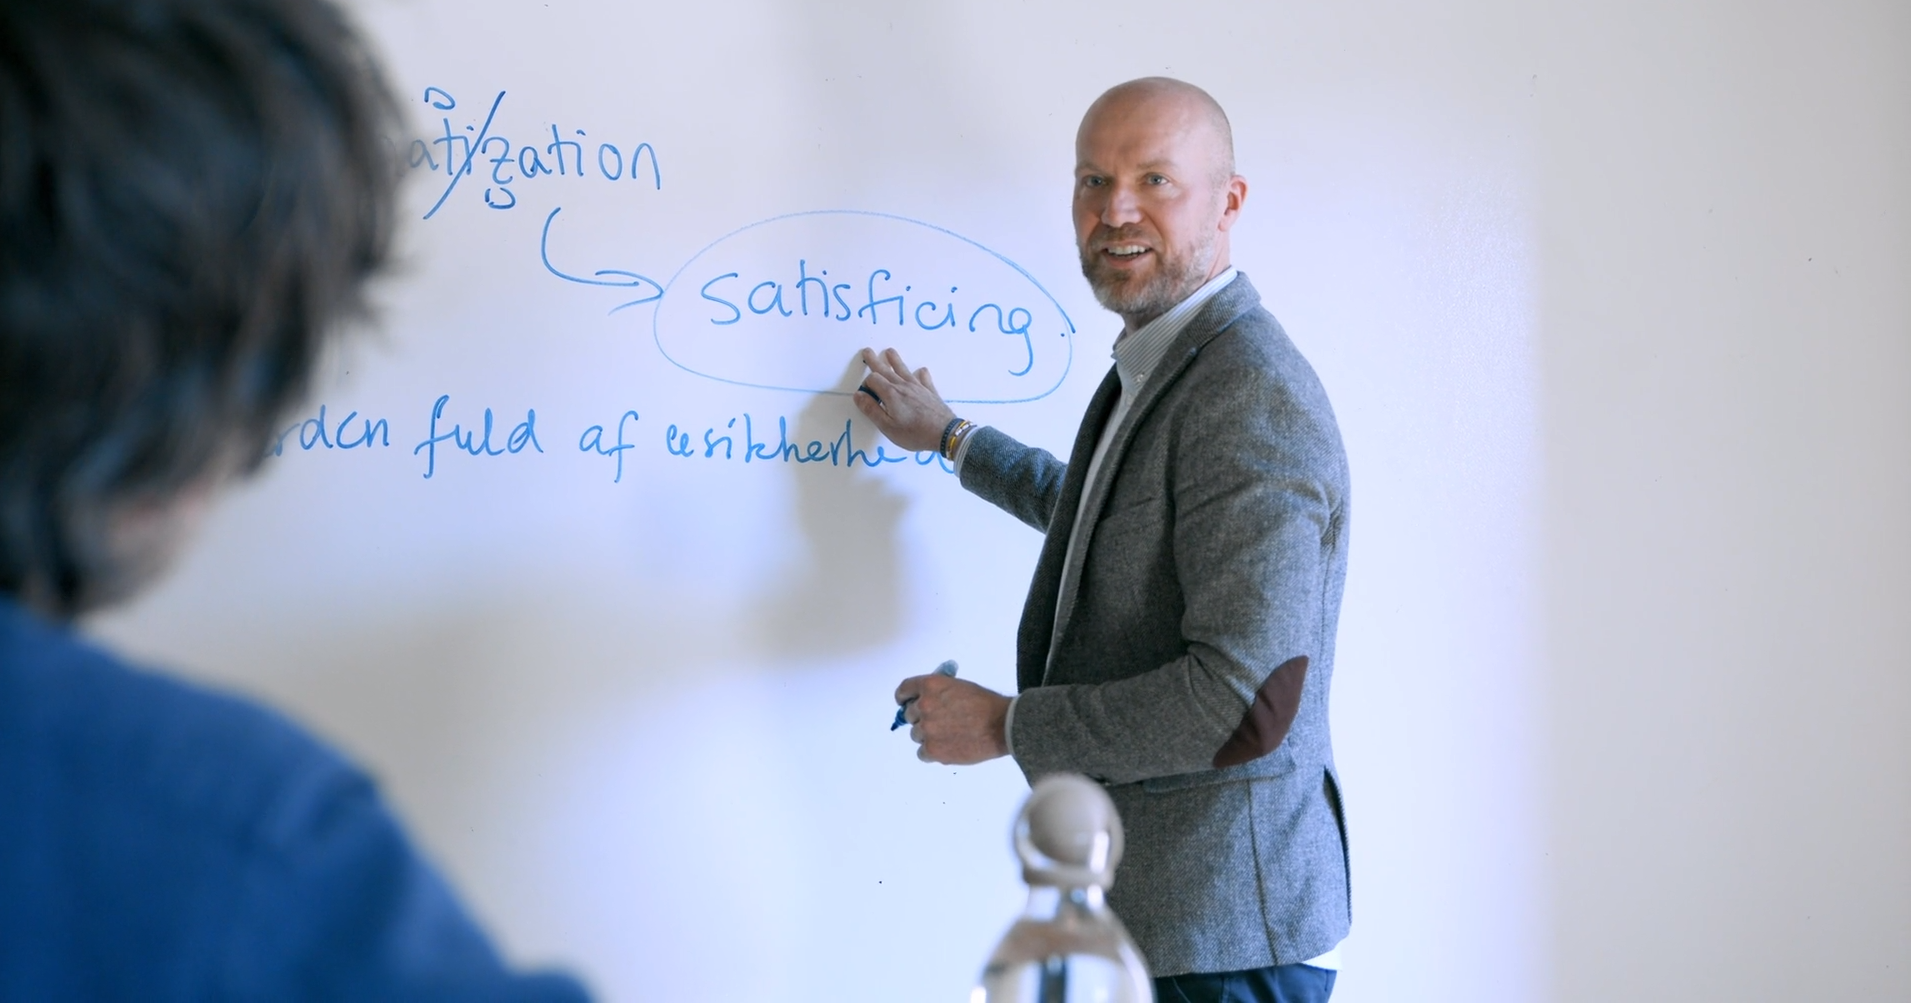 atization
satisficing
rden fuld af usikkerhed